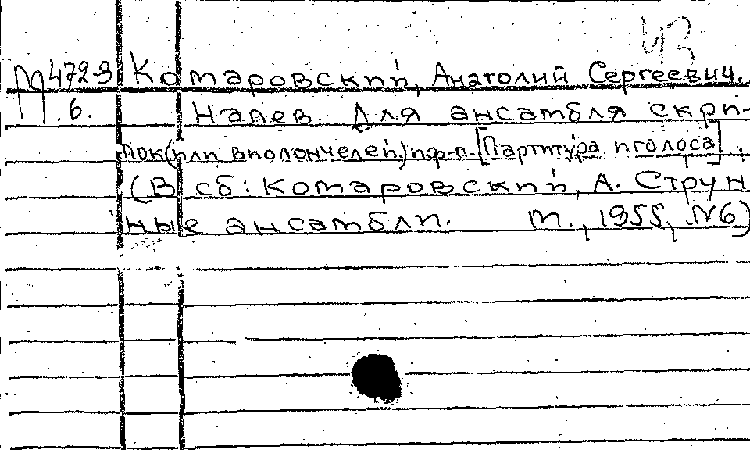 М472-9 Комаровский, Анатолий Сергеевич.
6. Напев для ансамбля скри-
пок (или виолончелей) и ф-п. [Партитура и голоса].
(В сб: Комаровский, А. Струн
ные ансамбли. М., 1955, №6)